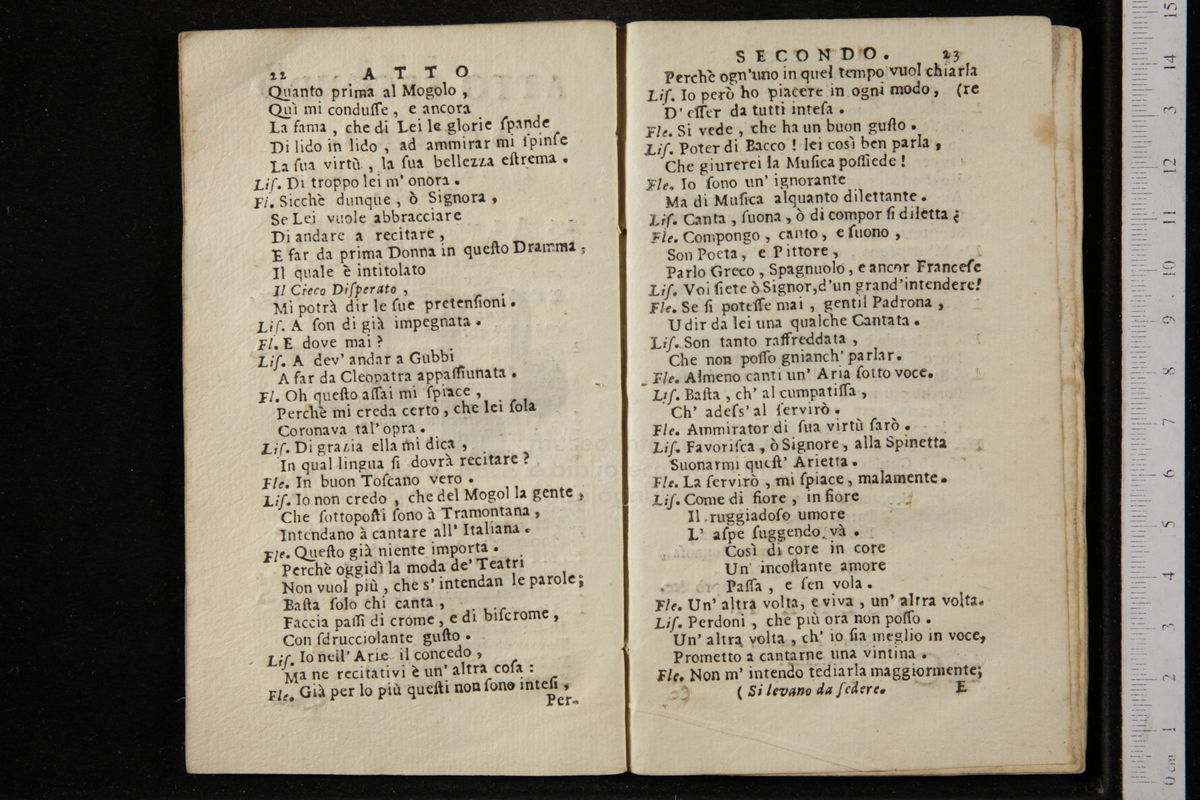 22 ATTO
Quanto prima al Mogolo ,
Quì mi conduſſe , e ancora
La fama , che di Lei le glorie ſpande
Di lido in lido , ad ammirar mi ſpinſe
La ſua virtù , la ſua bellezza eſtrema .
Liſ. Di troppo lei m' onora .
Fl. Sicchè dunque , ò Signora ,
Se Lei vuole abbracciare
Di andare a recitare ,
E far da prima Donna in queſto Dramma ,
Il quale è intitolato
Il Cieco Diſperato ,
Mi potrà dir le ſue pretenſioni .
Liſ. A ſon di già impegnata .
Fl. E dove mai ?
Liſ. A dev' andar a Gubbi
A far da Cleopatra appaſſiunata .
Fl. Oh queſto aſſai mi ſpiace ,
Perchè mi creda certo , che lei ſola
Coronava tal' opra .
Liſ. Di grazia ella mi dica ,
In qual lingua ſi dovrà recitare ?
Fle. In buon Toſcano vero .
Liſ. Io non credo , che del Mogol la gente ,
Che ſottopoſti ſono à Tramontana ,
Intendano à cantare all' Italiana .
Fle. Queſto già niente importa .
Perchè oggidì la moda de' Teatri
Non vuol più , che s' intendan le parole ;
Baſta ſolo chi canta ,
Faccia paſſi di crome , e di biſcrome ,
Con ſdrucciolante guſto .
Liſ. Io nell' Arie il concedo ,
Ma ne recitativi è un' altra coſa :
Fle. Già per lo più queſti non ſono inteſi ,
Per-
SECONDO. 23
Perchè ogn'uno in quel tempo vuol chiarla
Liſ. Io però ho piacere in ogni modo , (re
D' eſſer da tutti inteſa .
Fle. Si vede , che ha un buon guſto .
Liſ. Poter di Bacco ! lei così ben parla ,
Che giurerei la Muſica poſſiede !
Fle. Io ſono un' ignorante
Ma di Muſica alquanto dilettante .
Liſ. Canta , ſuona , ò di compor ſi diletta ?
Fle. Compongo , canto , e ſuono ,
Son Poeta , e Pittore ,
Parlo Greco , Spagnuolo , e ancor Franceſe
Liſ. Voi ſiete ò Signor, d'un grand'intendere!
Fle. Se ſi poteſſe mai , gentil Padrona ,
Udir da lei una qualche Cantata .
Liſ. Son tanto raffreddata ,
Che non poſſo gnianch' parlar .
Fle. Almeno canti un' Aria ſotto voce.
Liſ. Baſta , ch' al cumpatiſſa ,
Ch' adeſs' al ſervirò .
Fle. Ammirator di ſua virtù ſarò .
Liſ. Favoriſca , ò Signore , alla Spinetta
Suonarmi queſt' Arietta .
Fle. La ſervirò , mi ſpiace , malamente .
Liſ. Come di fiore , in fiore
Il ruggiadoſo umore
L' aſpe ſuggendo và .
Così di core in core
Un' incoſtante amore
Paſſa , e ſen vola .
Fle. Un' altra volta, e viva , un' altra volta.
Liſ. Perdoni , che più ora non poſſo .
Un' altra volta , ch' io ſia meglio in voce,
Prometto a cantarne una vintina .
Fle. Non m' intendo tediarla maggiormente;
( Si levano da ſedere. E